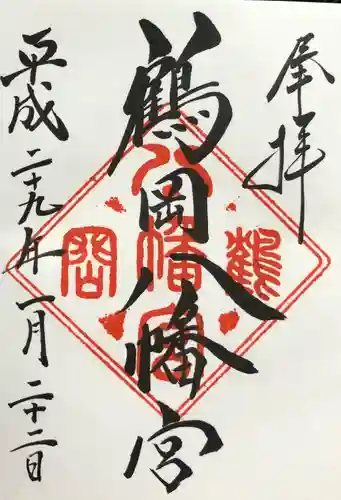 奉拝
鶴岡八幡宮
平成二十九年一月二十二日
鶴
八幡宮
岡